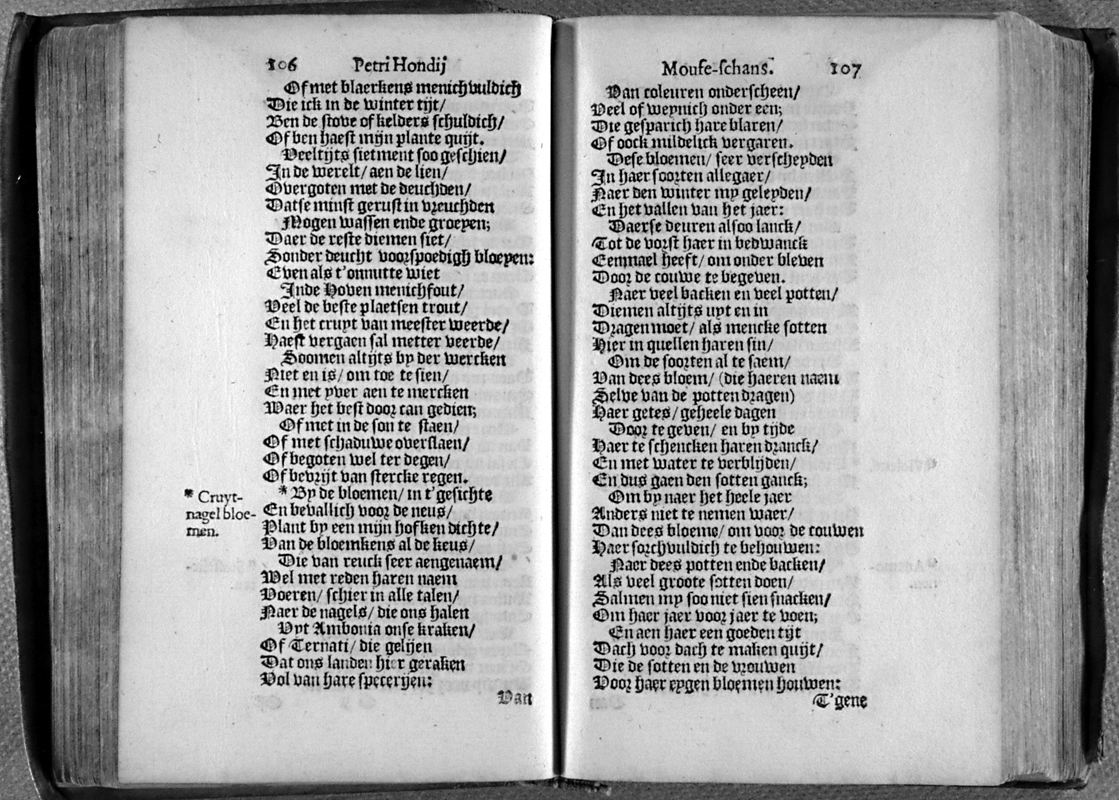 106 Petri Hondij
Of met blaerkens menichvuldich
Die ick in de winter tijt/
Ben de stove of kelders schuldich/
Of ben haest mijn plante quijt.
Veeltijts sietment soo geschien/
In de werelt/ aen de lien/
Overgoten met de deuchden/
Datse minst gerust in vreuchden
Mogen wassen ende groeyen;
Daer de reste diemen siet/
Sonder deucht voorspoedigh bloeyen:
Even als t'onnutte wiet
Inde Hoven menichfout/
Veel de beste plaetsen trout/
En het cruyt van meester weerde/
Haest vergaen sal metter veerde/
Soomen altijts by der wercken
Niet en is/ om toe te sien/
En met yver aen te mercken
Waer het best door can gedien;
Of met in de son te staen/
Of met schaduwe overslaen/
Of begoten wel ter degen/
Of bevrijt van stercke regen.
* By de bloemen/ in t'gesichte
En bevallich voor de neus/
Plant by een mijn hofken dichte/
Van de bloemkens al de keus/
Die van reuck seer aengenaem/
Wel met reden haren naem
Voeren/ schier in alle talen/
Naer de nagels/ die ons halen
Uyt Ambonia onse kraken/
Of Ternati/ die gelijen
Dat ons landen hier geraken
Vol van hare specerijen:
Van
* Cruyt-
nagel bloe-
men.
Mouse-schans. 107
Van coleuren onderscheen/
Veel of weynich onder een;
Die gesparich hare blaren/
Of oock mildelick vergaren.
Dese bloemen/ seer verscheyden
In haer soorten allegaer/
Naer den winter my geleyden/
En het vallen van het jaer:
Daerse deuren alsoo lanck/
Tot de vorst haer in bedwanck
Eenmael heeft/ om onder bleven
Door de couwe te begeven.
Naer veel backen en veel potten/
Diemen altijts uyt en in
Dragen moet/ als mencke sotten
Hier in quellen haren sin/
Om de soorten al te saem/
Van dees bloem/ (die haeren naem
Selve van de potten dragen)
Haer getes/ geheele dagen
Door te geven/ en by tijde
Haer te schencken haren dranck/
En met water te verblijden/
En dus gaen den sotten ganck;
Om by naer het heele jaer
Anders niet te nemen waer/
Dan dees bloeme/ om voor de couwen
Haer sorchvuldich te behouwen:
Naer dees potten ende backen/
Als veel groote sotten doen/
Salmen my soo niet sien snacken/
Om haer jaer voor jaer te voen;
En aen haer een goeden tijt
Dach voor dach te maken quijt/
Die de sotten en de vrouwen
Voor haer eygen bloemen houwen:
T'gene